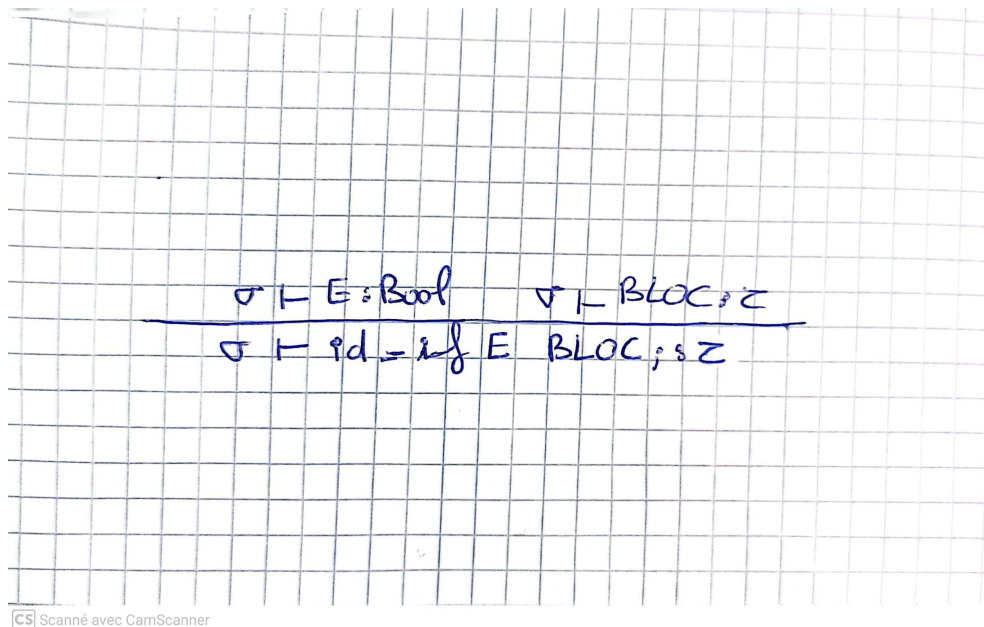 σ ⊢ E : Bool σ ⊢ BLOC : τ
σ ⊢ id = if E BLOC ; : τ
CS Scanné avec CamScanner